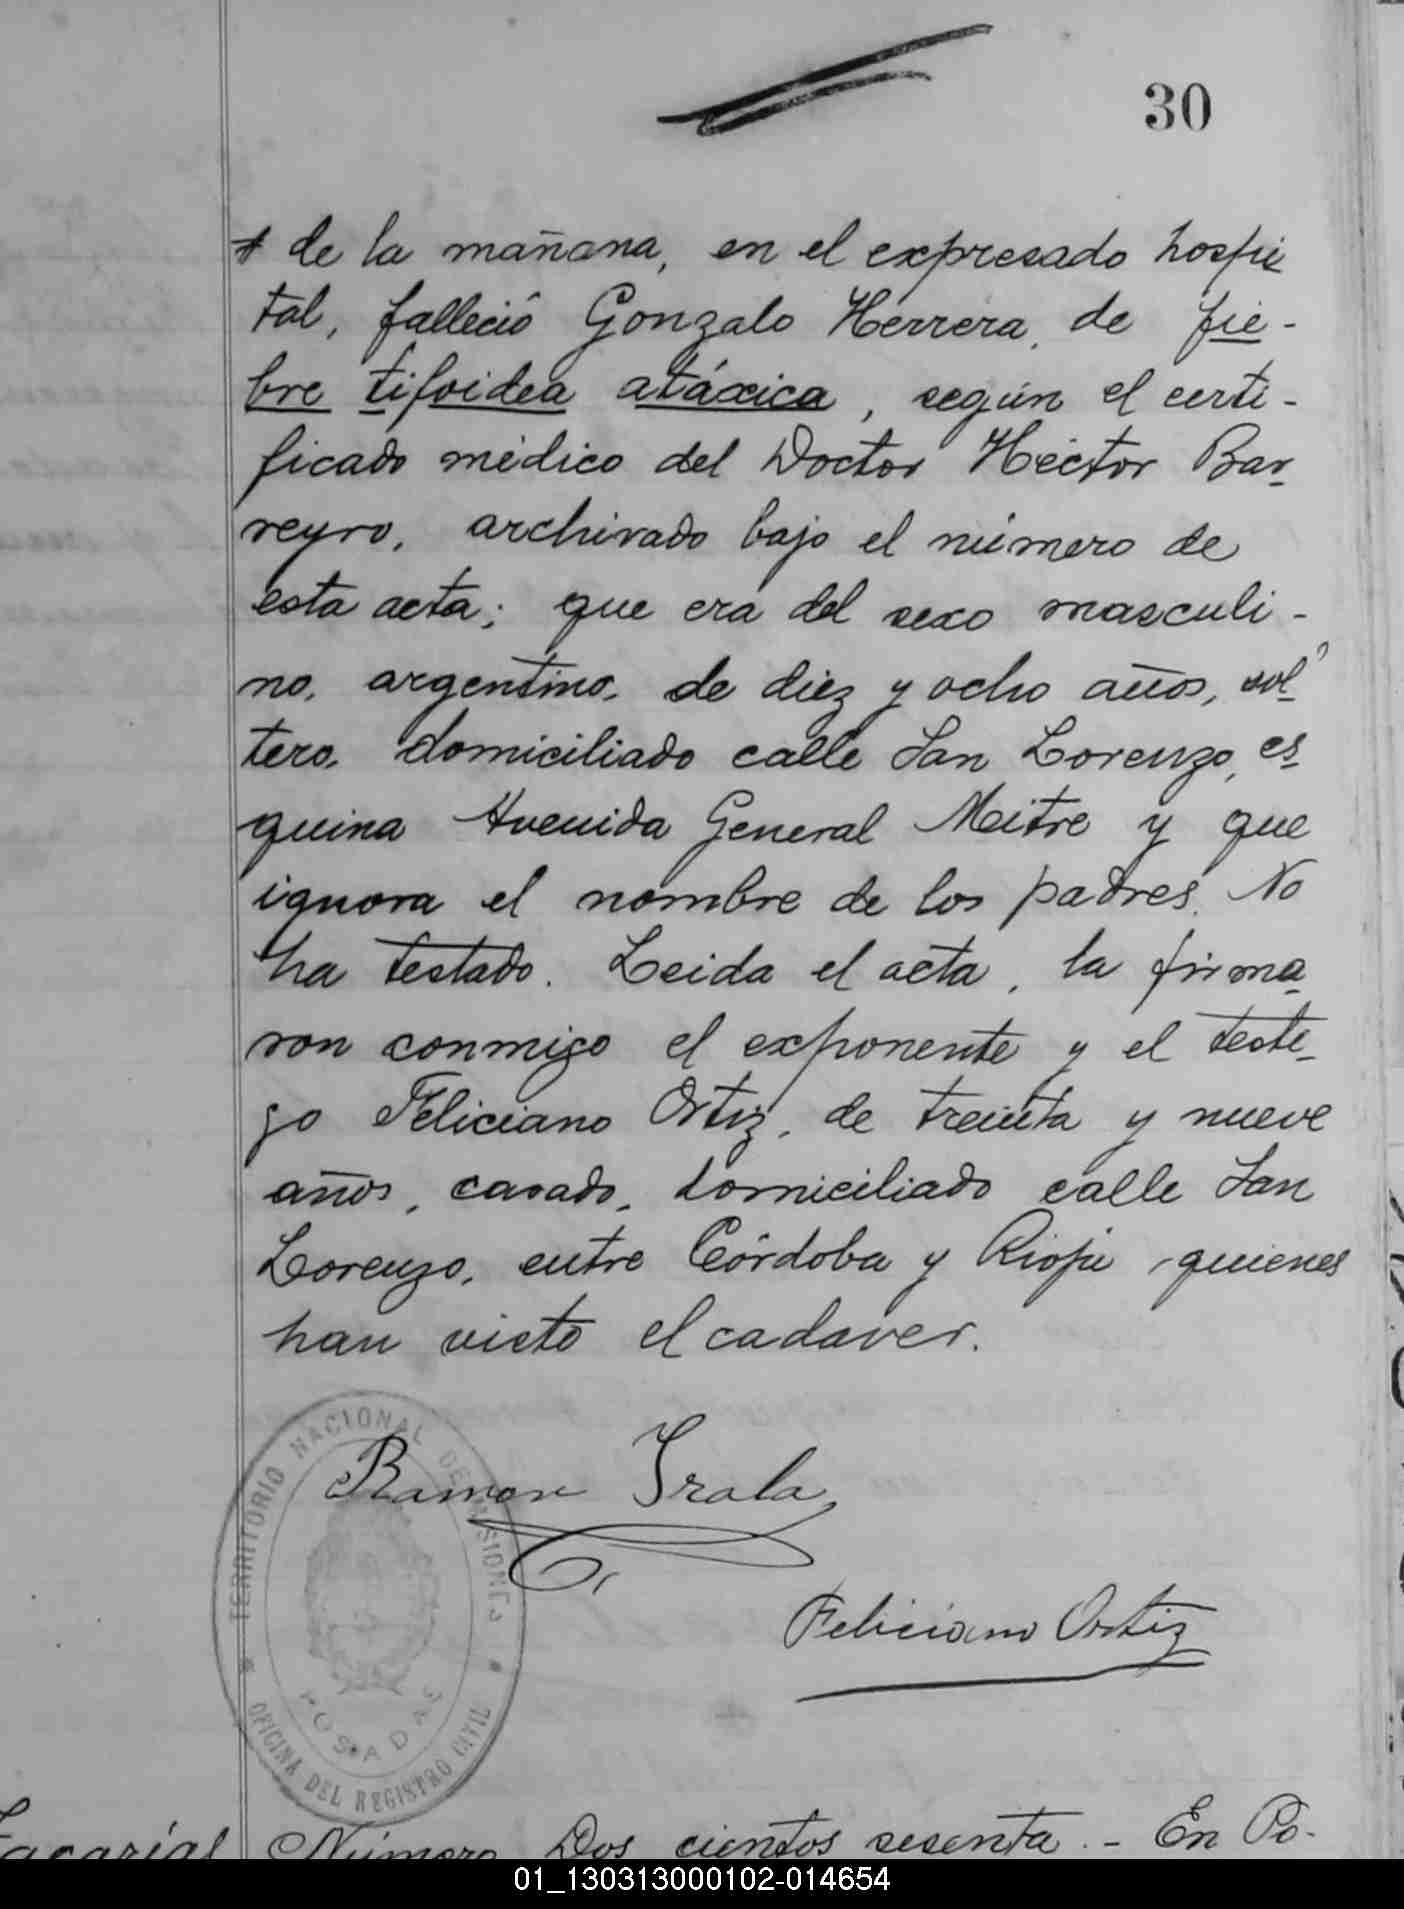 30
de la mañana, en el expresado hospi
tal, falleció Gonzalo Herrera, de fie-
bre tifoidea atáxica, según el certi-
ficado médico del Doctor Héctor Bar
reyro, archivado bajo el número de
esta acta; que era del sexo masculi-
no, argentino, de diez y ocho años, sol
tero, domiciliado calle San Lorenzo, es
quina Avenida General Mitre y que
ignora el nombre de los padres. No
ha testado. Leida el acta, la firma
ron conmigo el exponente y el testi-
go Feliciano Ortiz, de treinta y nueve
años, casado, domiciliado calle San
Lorenzo, entre Córdoba y Rioja, quienes
han visto el cadaver.
Ramon Irala
Feliciano Ortiz
TERRITORIO NACIONAL DE MISIONES
POSADAS
OFICINA DEL REGISTRO CIVIL
Número Dos cientos sesenta.- En Po-
01_130313000102-014654